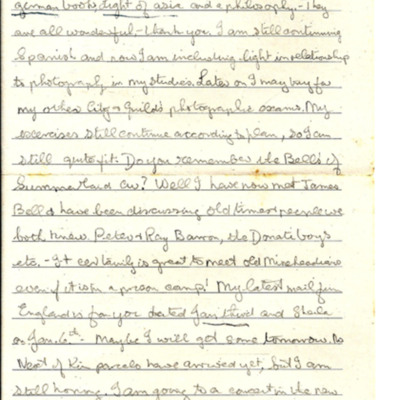 german books, light of asia and a philosophy. - They
are all wonderful - thank you. I am still continuing
Spanish and now I am including light in relationship
to photography in my studies. Later on I may try for
my other City & Guilds photographic exams. My
exercises still continue according to plan, so I am
still quite fit. Do you remember the Bells of
Summerland Av? Well I have now met James
Bell & have been discussing old times & people we
both knew. Peter & Ray Barron, the Donati boys
etc. - It certainly is great to meet old Mineheadians
even if it is in a prison camp! My latest mail from
England is for you dated Jan third and Sheila
on Jan 6th. - Maybe I will get some tomorrow. No
Next of Kin parcels have arrived yet, but I am
still hoping. I am going to a concert in the new